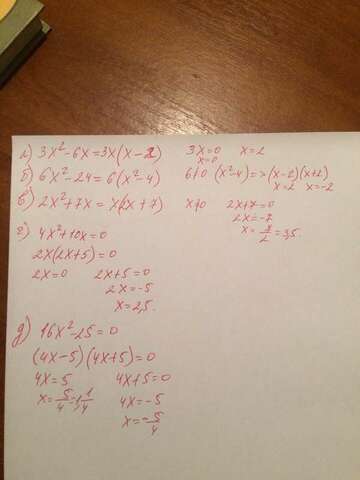 а) 3x²-6x=3x(x-2) 3x=0 x=2
x=0
б) 6x²-24=6(x²-4) 6≠0 (x²-4)=>(x-2)(x+2)
x=2 x=-2
в) 2x²+7x=x(2x+7) x≠0 2x+7=0
2x=-7
x=7/2=3,5.
г) 4x²+10x=0
2x(2x+5)=0
2x=0 2x+5=0
2x=-5
x=2,5.
д) 16x²-25=0
(4x-5)(4x+5)=0
4x=5 4x+5=0
x=5/4=1 1/4 4x=-5
x=-5/4